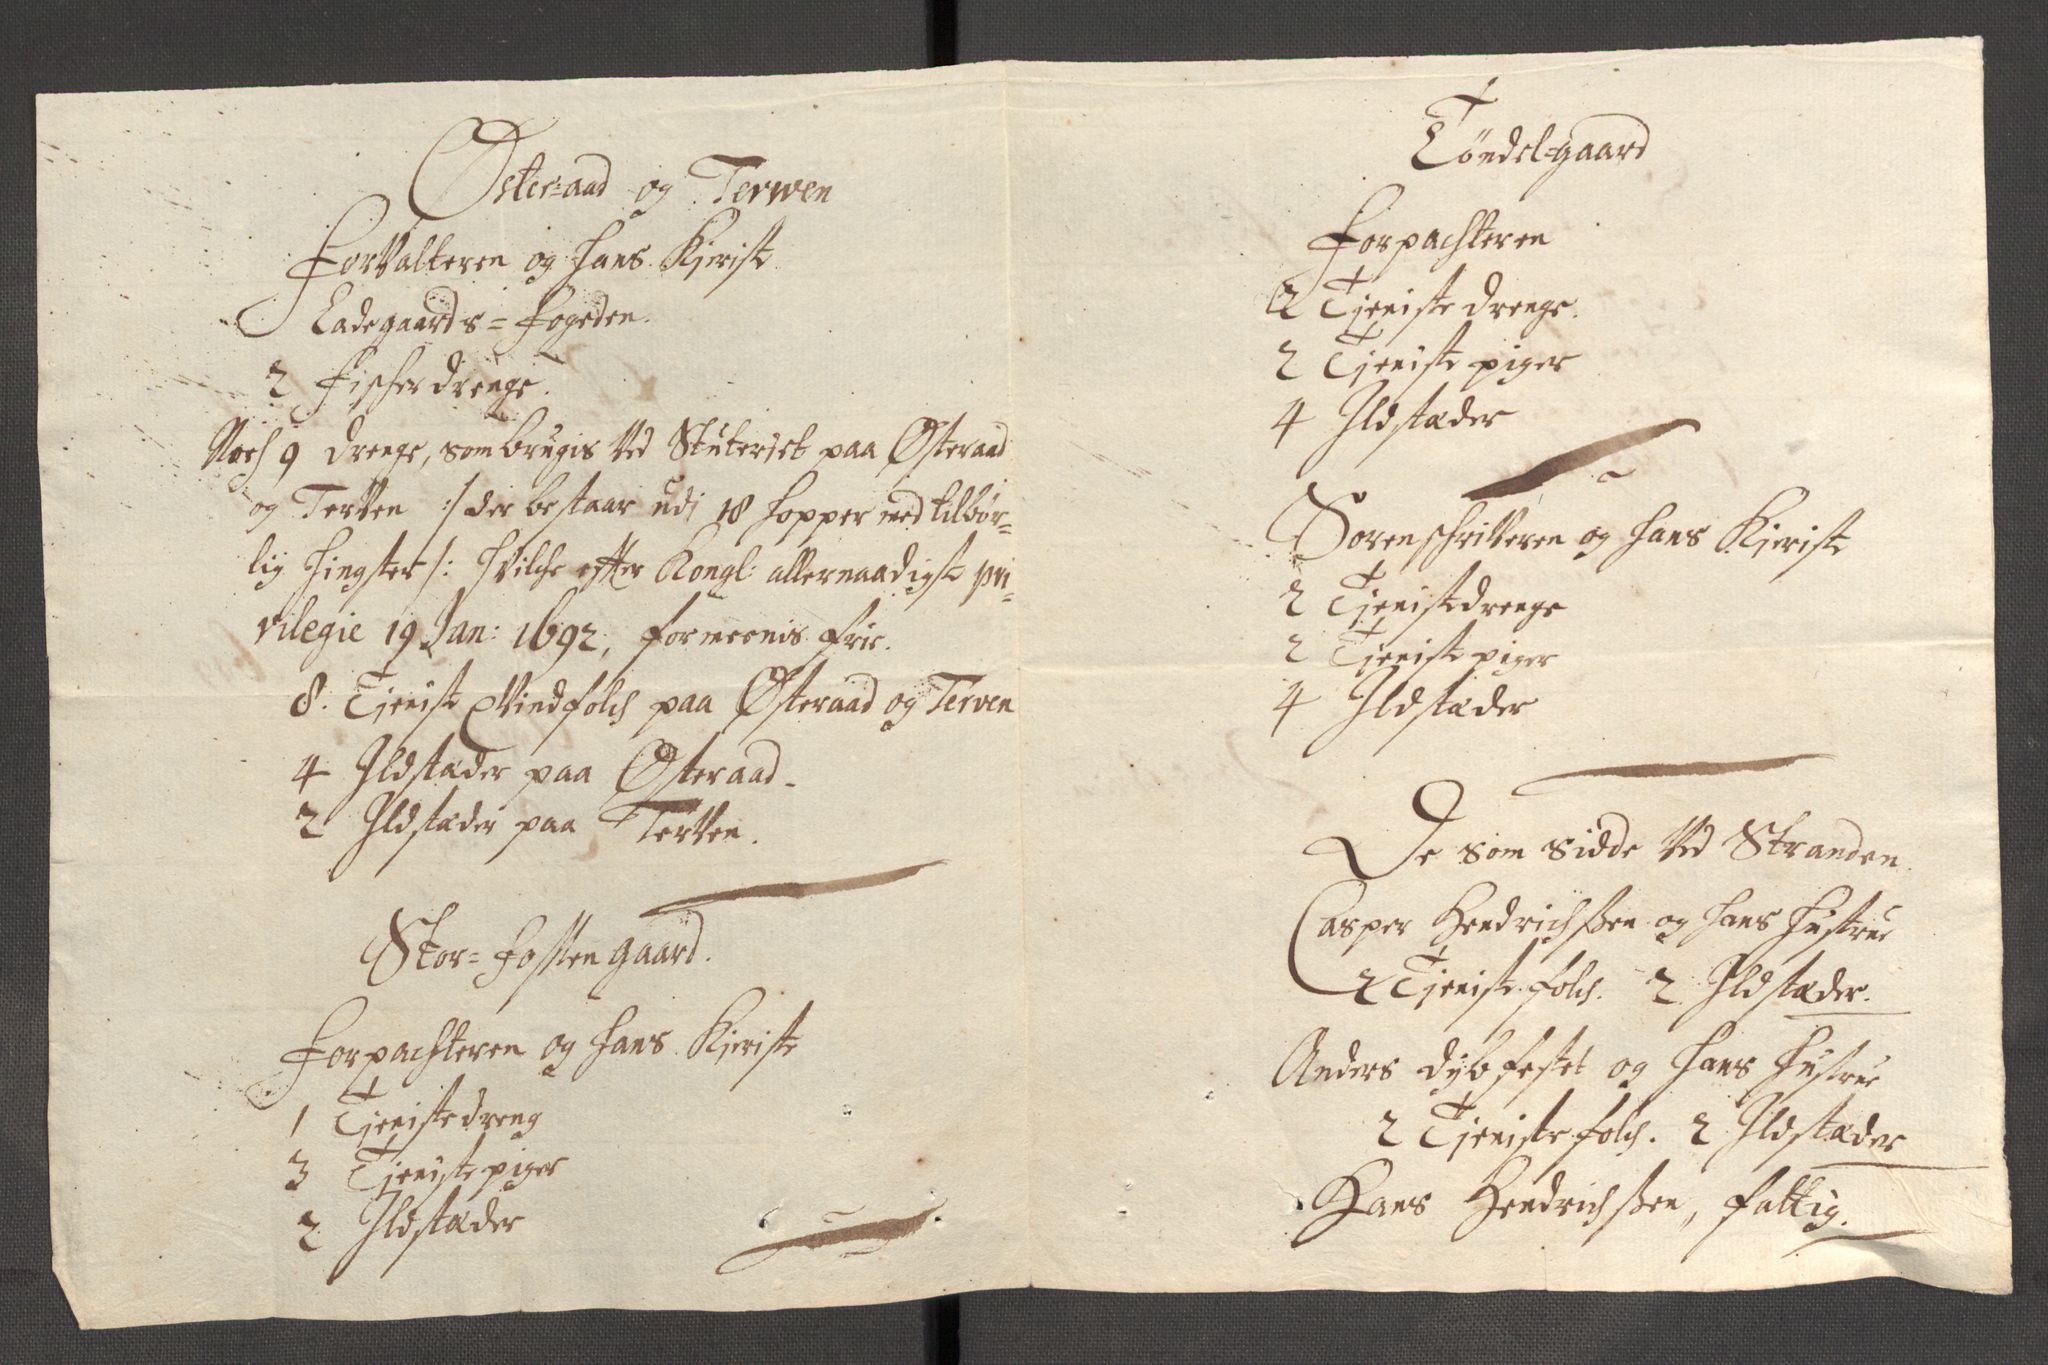 Øster=aad og Terwen
Forvalteren og hans Kieriste
Ladegaards=fogeden.
2 fischerdrenge.
Noch 9 drenge, som brugis ved Stuteriet paa Østeraad
og Terven :/ der bestaar udi 18 hopper med tilbør-
lig hingster /: hvilche efter Kongl: allernaadigste pri-
vilegie 19 Jan: 1692, formeenis frie.
8. Tieniste Qvindfolch paa Østeraad og Terven
4 Ildstæder paa Østeraad.
2 Ildstæder paa Terven.
Stor=fosten gaard.
Forpachteren og hans Kieriste
1 Tienistedreng
3 Tieniste piger
2 Ildstæder
Töndel=gaard
Forpachteren
2 Tieniste drenge.
2 Tieniste piger
4 Ildstæder
Sorenschriveren og hans Kieriste
2 Tienistedrenge
2 Tieniste piger
4 Ildstæder
De som sidde ved Stranden.
Casper Hendrichssen og hans hustrue
2 Tieniste folch. 2 Ildstæder.
Anders dybfestet og hans hustrue
2 Tieniste folch. 2 Ildstæder
Hans Hendrichssen, fattig.